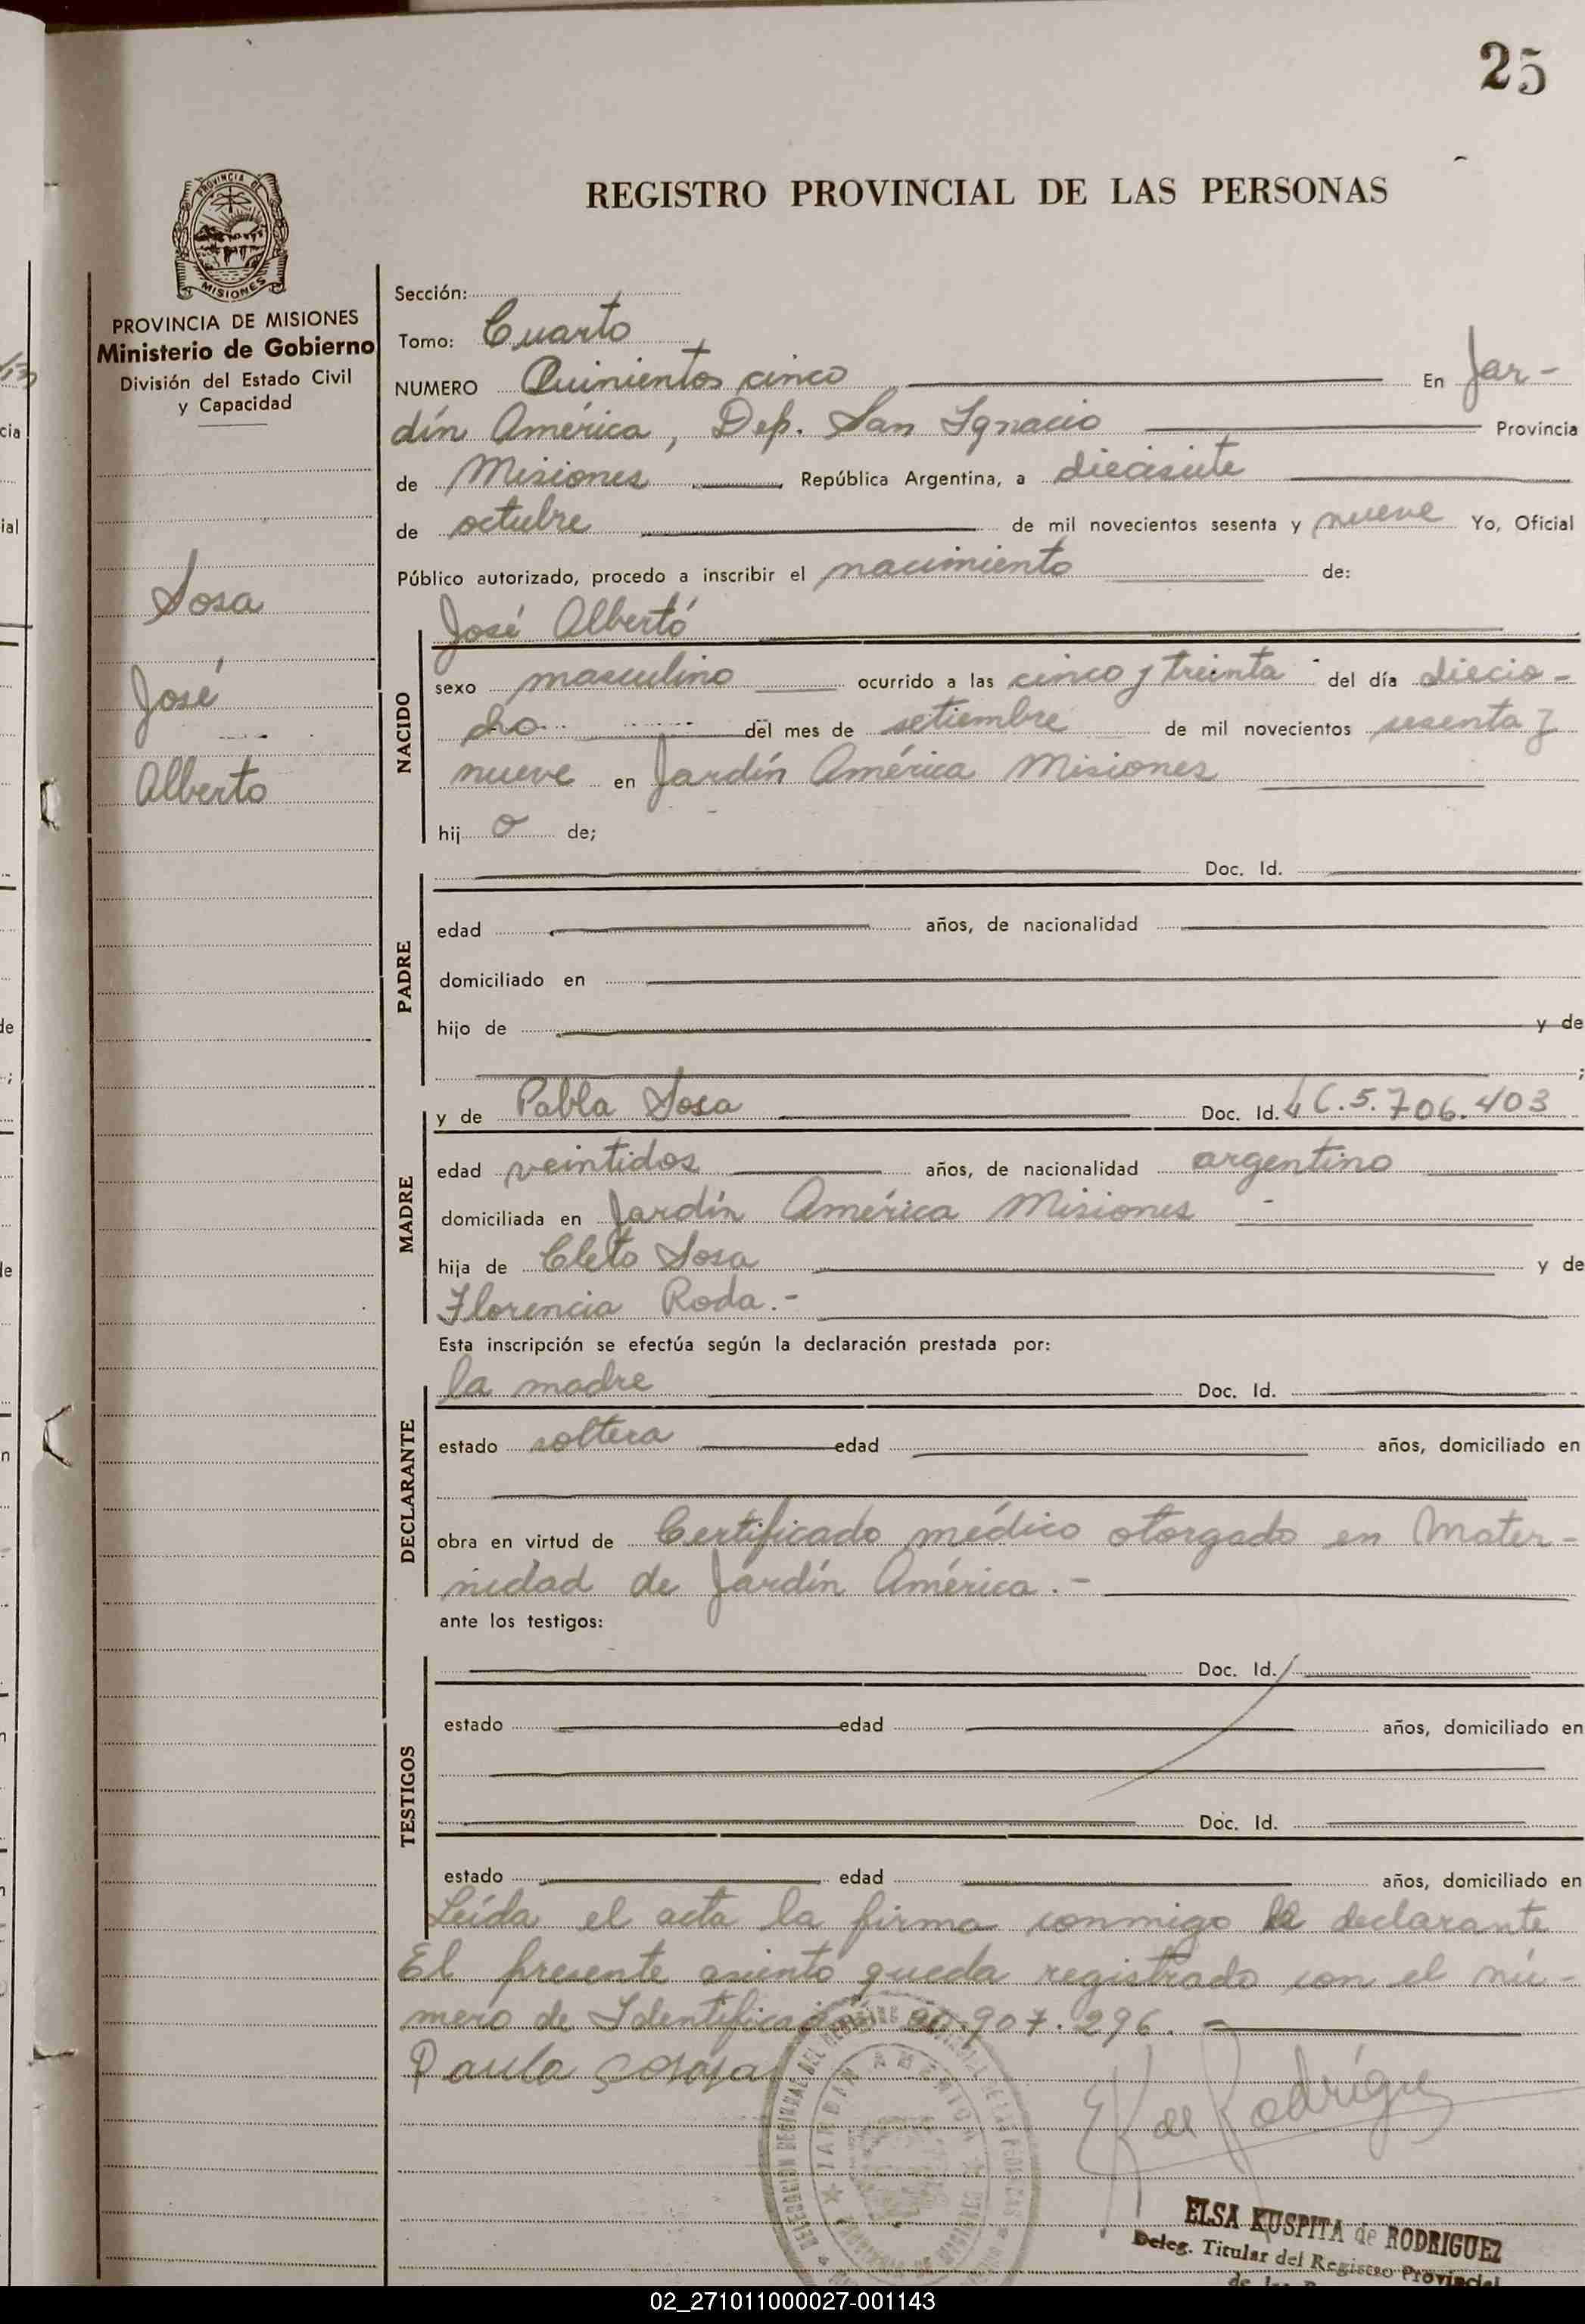 25
REGISTRO PROVINCIAL DE LAS PERSONAS
PROVINCIA DE
MISIONES
PROVINCIA DE MISIONES
Ministerio de Gobierno
División del Estado Civil
y Capacidad
Sosa
José
Alberto
Sección:
Tomo: Cuarto
NUMERO Quinientos cinco En Jar-
dín América, Dep. San Ignacio Provincia
de Misiones República Argentina, a diecisiete
de octubre de mil novecientos sesenta y nueve Yo, Oficial
Público autorizado, procedo a inscribir el nacimiento de:
José Alberto
NACIDO
sexo masculino ocurrido a las cinco y treinta del día diecio-
cho del mes de setiembre de mil novecientos sesenta y
nueve en Jardín América Misiones
hij o de;
PADRE
Doc. Id.
edad años, de nacionalidad
domiciliado en
hijo de y de
;
MADRE
y de Pabla Sosa Doc. Id. LC.5.706.403
edad veintidos años, de nacionalidad argentino
domiciliada en Jardín América Misiones
hija de Cleto Sosa y de
Florencia Roda.-
Esta inscripción se efectúa según la declaración prestada por:
DECLARANTE
la madre Doc. Id.
estado soltera edad años, domiciliado en
obra en virtud de Certificado médico otorgado en Mater-
nidad de Jardín América.-
ante los testigos:
TESTIGOS
Doc. Id.
estado edad años, domiciliado en
Doc. Id.
estado edad años, domiciliado en
Leída el acta la firma conmigo la declarante
El presente asiento queda registrado con el nú-
mero de Identificación 20.907.296.-
Paula Sosa
K de Rodrígue
JARDIN AMERICA
ELSA KUSPITA de RODRIGUEZ
Deleg. Titular del Registro Provincial
02_271011000027-001143